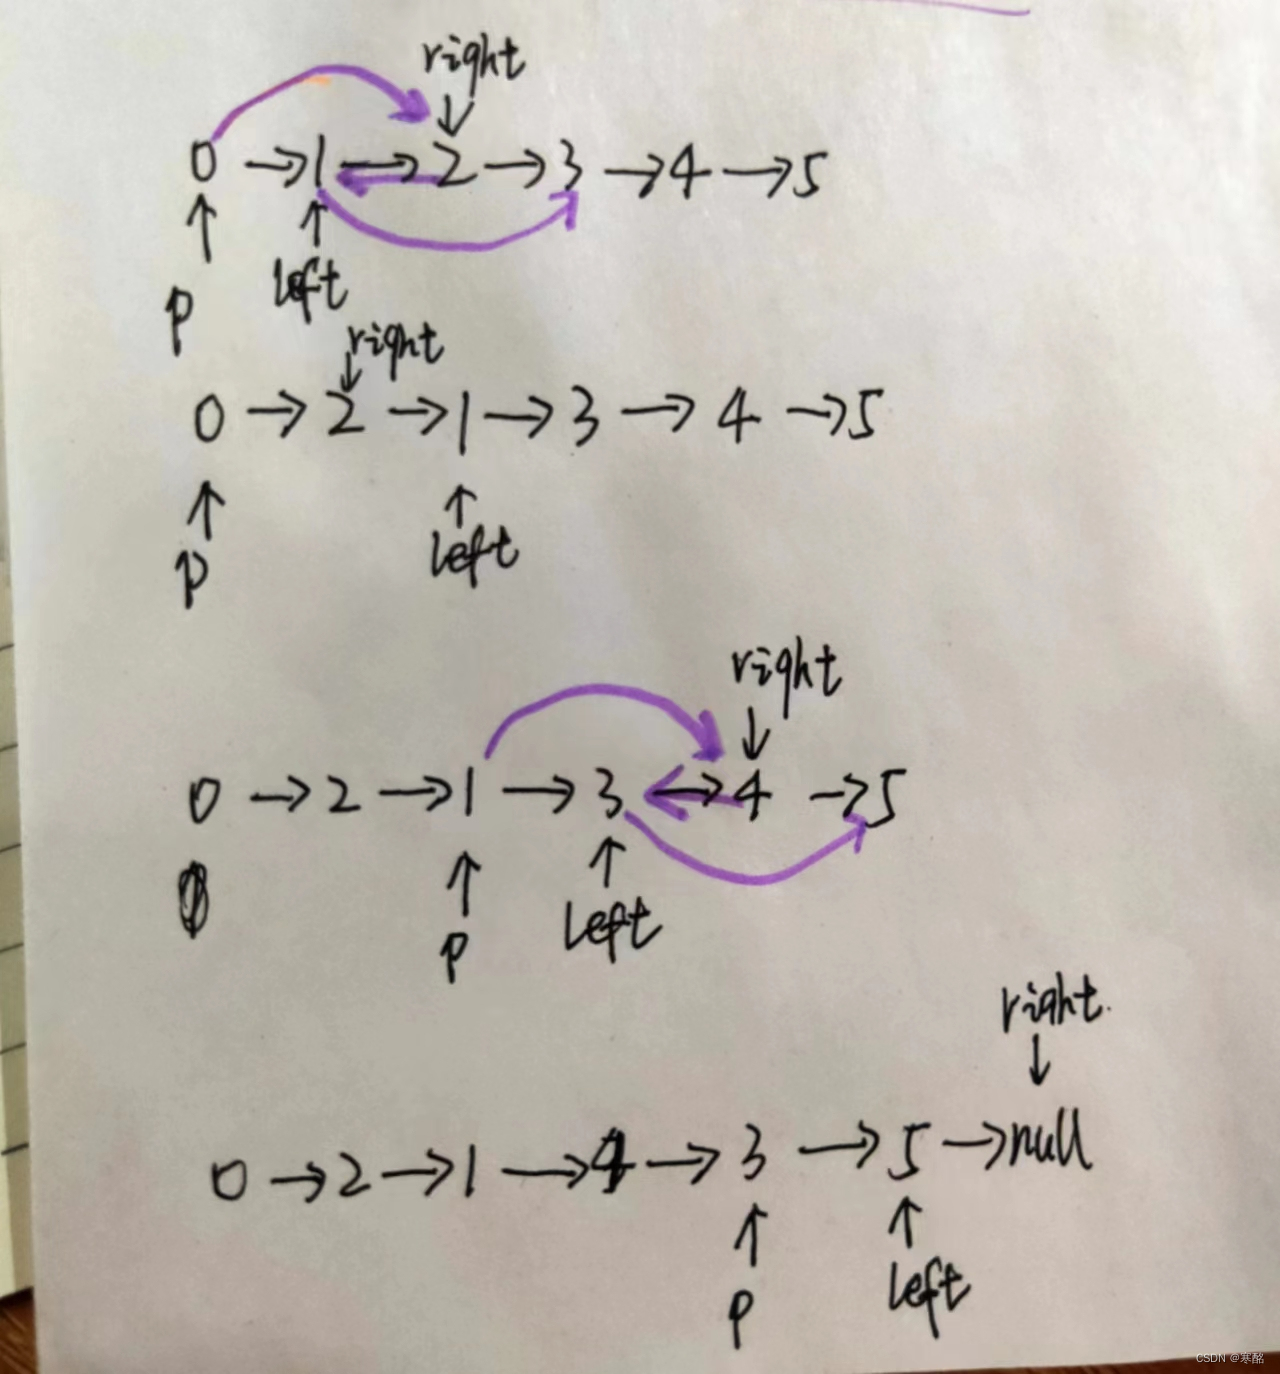 right
0 → 1 → 2 → 3 → 4 → 5
p left
right
0 → 2 → 1 → 3 → 4 → 5
p left
right
0 → 2 → 1 → 3 → 4 → 5
p left
right.
0 → 2 → 1 → 4 → 3 → 5 → null
p left
CSDN @寒酩